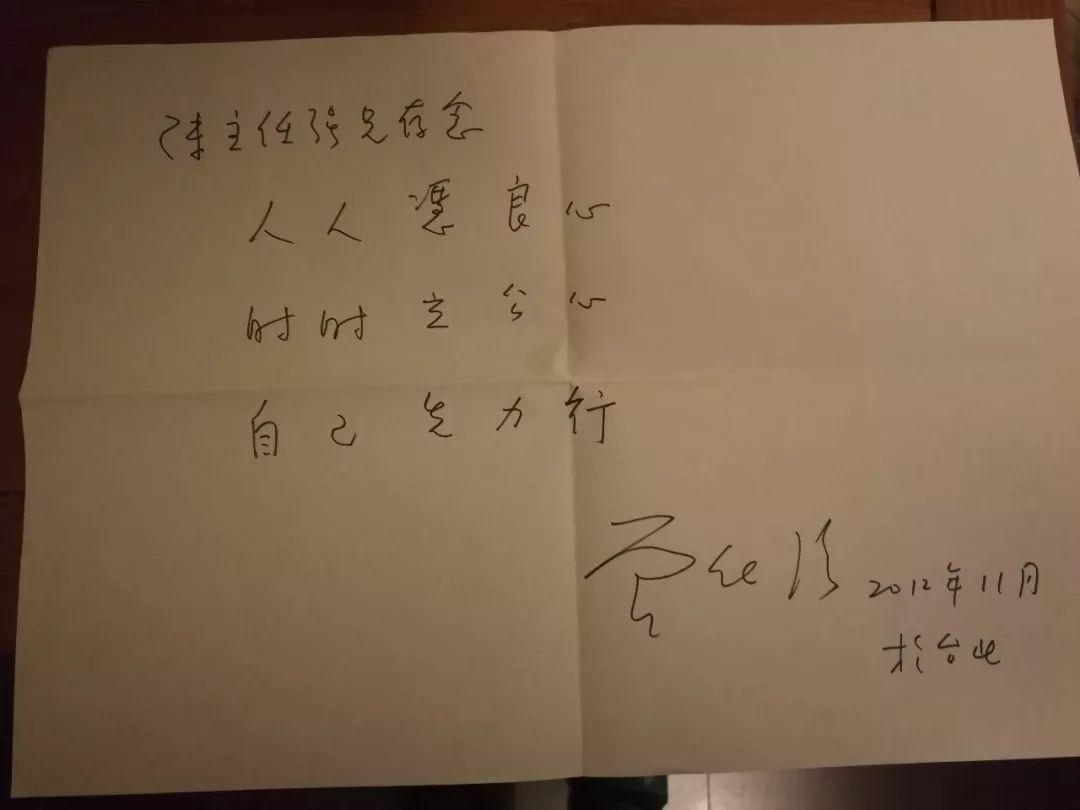 陈主任强兄存念
人人憑良心
时时立公心
自己先力行
曾仕强 2012年11月
於台北